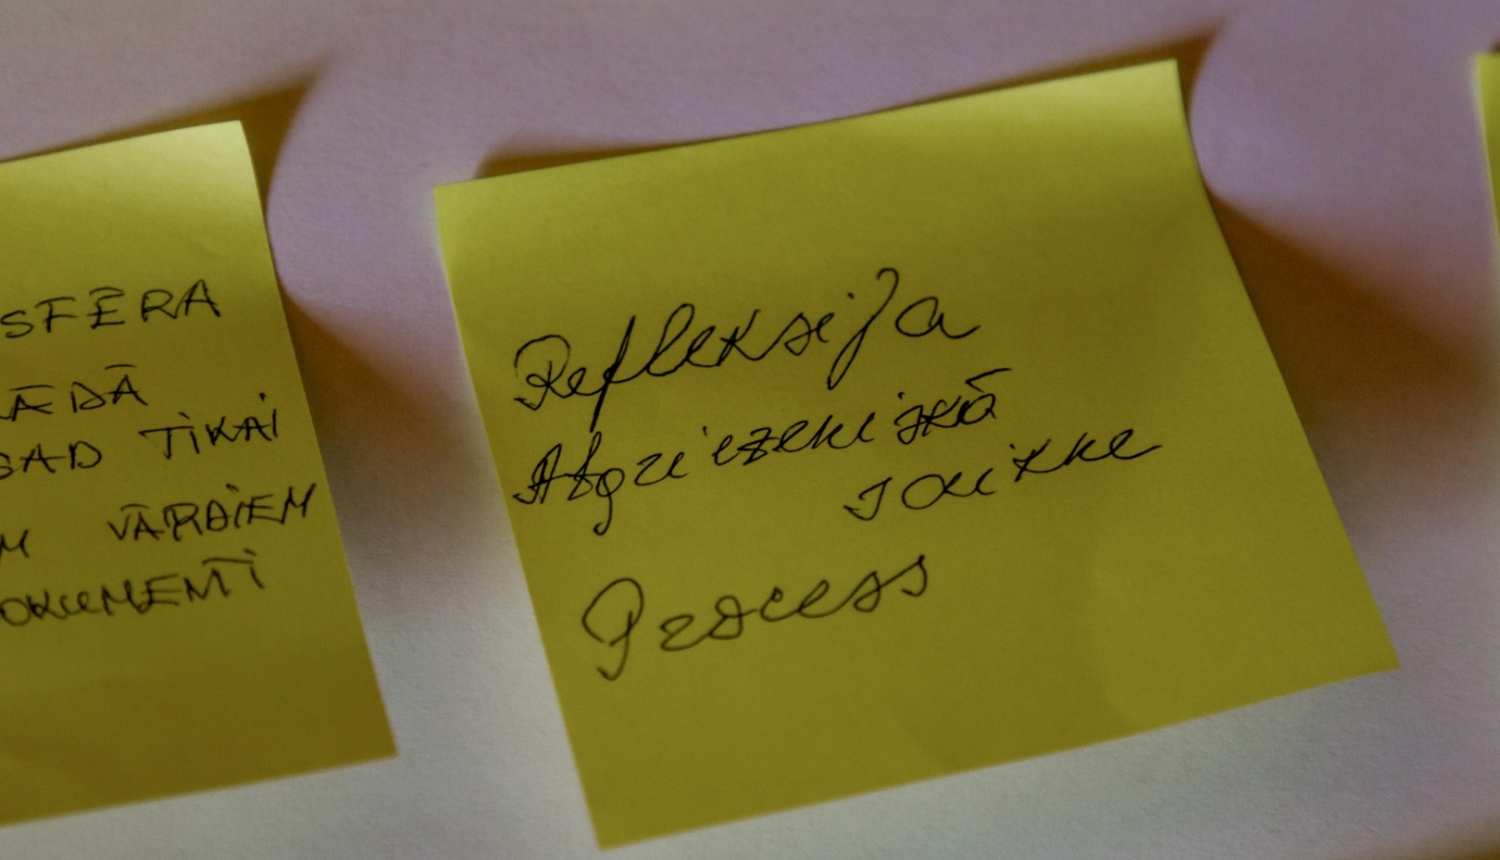 SFĒRA
TIKAI
VĀRDIEM
OKUMENTI
Refleksija
Atgriezeniskā
saikne
Process